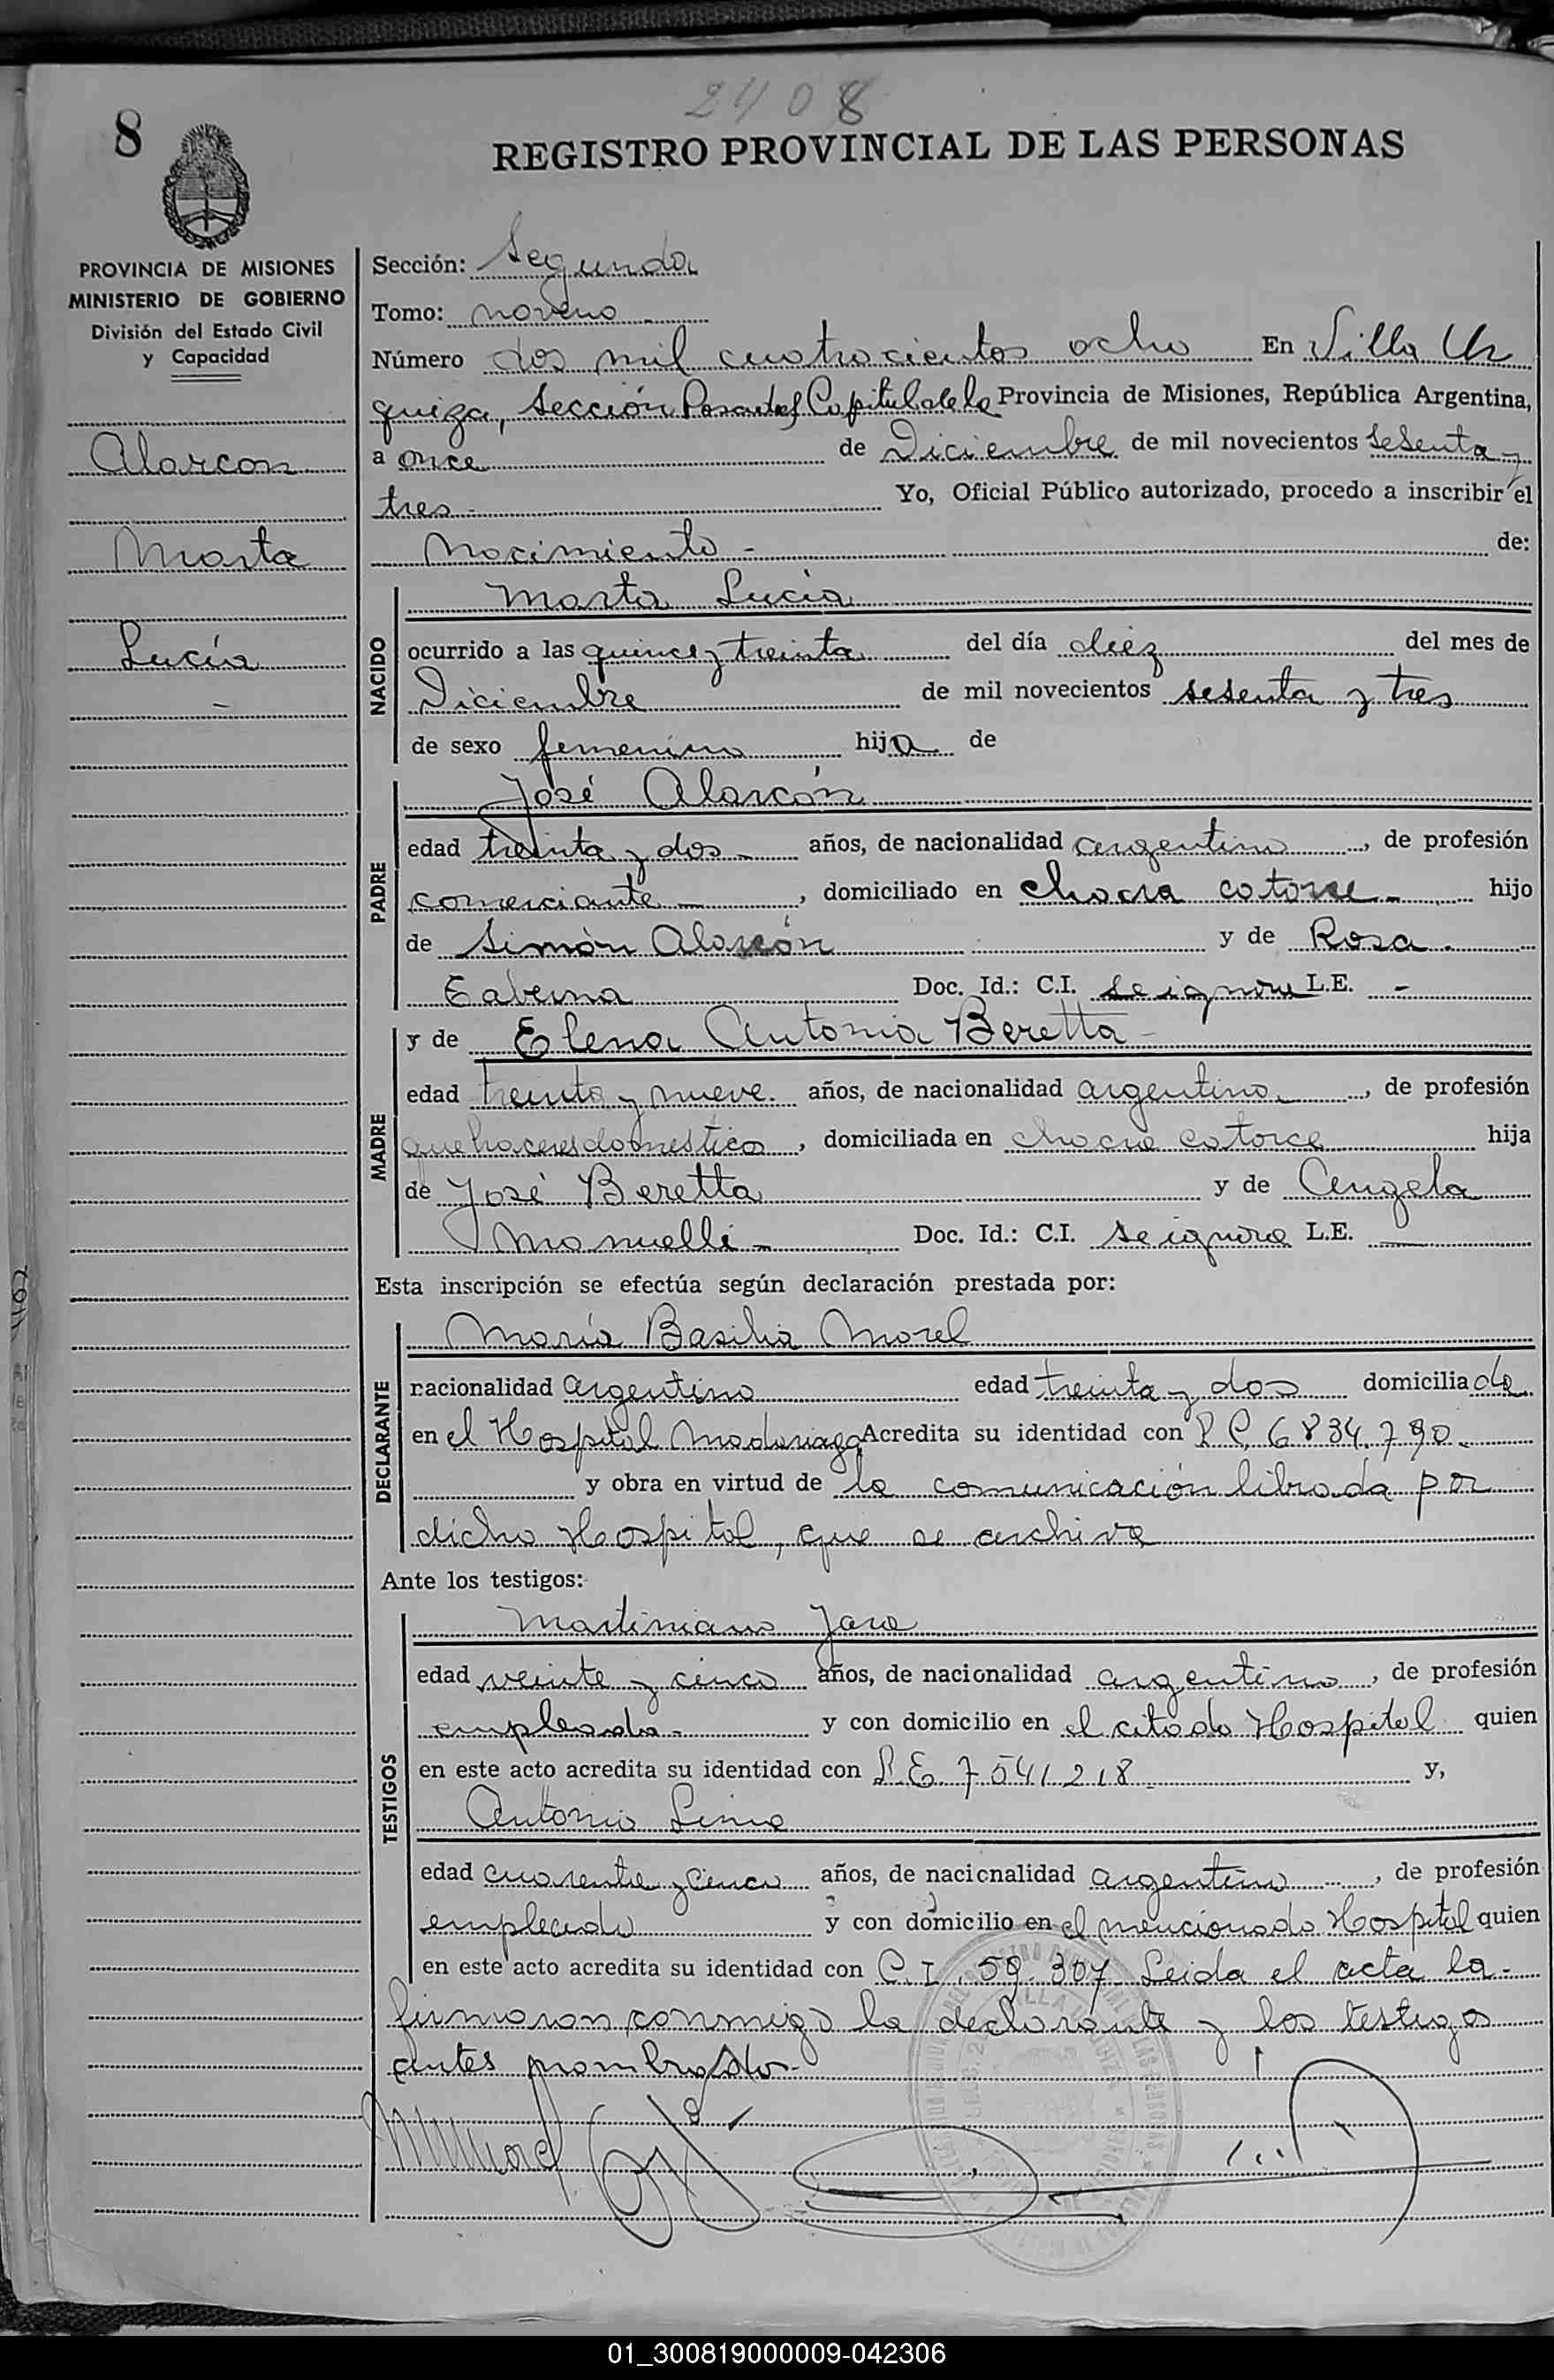 2408
8
REGISTRO PROVINCIAL DE LAS PERSONAS
PROVINCIA DE MISIONES
MINISTERIO DE GOBIERNO
División del Estado Civil
y Capacidad
Alarcon
Marta
Lucía
-
Sección: Segunda
Tomo: noveno
Número dos mil cuatrocientos ocho En Villa Ur
quiza, Sección Posadas Capital de la Provincia de Misiones, República Argentina,
a once de Diciembre de mil novecientos sesenta y
tres Yo, Oficial Público autorizado, procedo a inscribir el
Nacimiento - de:
NACIDO
Marta Lucía
ocurrido a las quince y treinta del día diez del mes de
Diciembre de mil novecientos sesenta y tres
de sexo femenino hija de
PADRE
José Alarcón
edad treinta y dos años, de nacionalidad argentino, de profesión
comerciante, domiciliado en chacra catorce hijo
de Simón Alarcón y de Rosa
Taberna Doc. Id.: C.I. se ignora L.E. -
MADRE
y de Elena Antonia Beretta
edad treinta y nueve años, de nacionalidad argentina, de profesión
quehaceres domestico, domiciliada en chacra catorce hija
de José Beretta y de Angela
Manuelli Doc. Id.: C.I. se ignora L.E. -
Esta inscripción se efectúa según declaración prestada por:
DECLARANTE
María Basilia Morel
nacionalidad argentina edad treinta y dos domiciliada
en el Hospital Madariaga Acredita su identidad con L C, 6834.790
y obra en virtud de la comunicación librada por
dicho Hospital, que se archiva
Ante los testigos:
TESTIGOS
Martiniano Jara
edad veinte y cinco años, de nacionalidad argentino, de profesión
empleado y con domicilio en el citado Hospital quien
en este acto acredita su identidad con L.E. 7541218 y,
Antonio Lima
edad cuarenta y cinco años, de nacionalidad argentino, de profesión
empleado y con domicilio en el mencionado Hospital quien
en este acto acredita su identidad con C.I. 59.307 Leida el acta la
firmaron conmigo la declarante y los testigos
antes nombrado
01_300819000009-042306